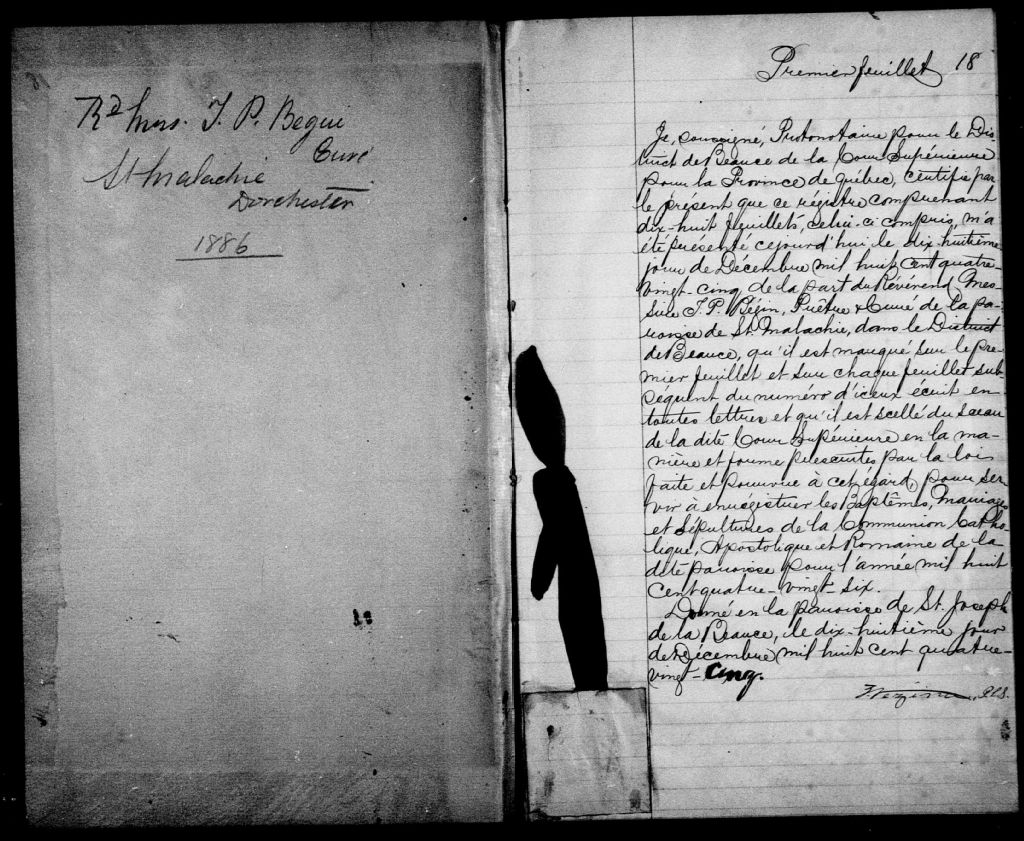 Rd Mrs. J. P. Begin
Curé
St Malachie
Dorchester
1886
Premier feuillet 18
Je, soussigné, Protonotaire pour le Dis-
trict de Beauce de la Cour Supérieure
pour la Province de Québec, certifie par
le présent que ce régistre comprenant
dix-huit feuillets, celui-ci compris, m'a
été présenté cejourd'hui le dix-huitième
jour de Décembre mil huit cent quatre-
vingt-cinq de la part du Révérend Mes-
sire J. P. Bégin, Prêtre & Curé de la pa-
roisse de St. Malachie, dans le District
de Beauce, qu'il est marqué sur le pre-
mier feuillet et sur chaque feuillet sub-
séquent du numéro d'iceux écrit en
toutes lettres et qu'il est scellé du sceau
de la dite Cour Supérieure en la ma-
nière et forme prescrites par la loi
faite et pourvue à cet égard, pour ser-
vir à enrégistrer les Baptêmes, Mariages
et Sépultures de la Communion Catho-
lique, Apostolique et Romaine de la
dite paroisse pour l'année mil huit
cent quatre-vingt-six.
Donné en la paroisse de St. Joseph
de la Beauce, le dix-huitième jour
de Décembre mil huit cent quatre-
vingt-cinq.